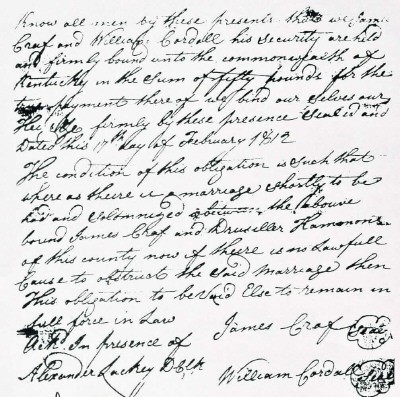 Know all men by these presents that we James
Craf and William Cordall his security are held
and firmly bound unto the commonwealth of
Kentucky in the sum of fifty pounds for the
payment there of we bind our selves our
firmly by these presence Sealed and
Dated this 17th day of February 1812
The condition of this obligation is such that
where as theire is a marriage shortly to be
had and solomnized between the above
bound James Craf and Druseller Hammons
of this county now if theire is no Lawfull
Cause to obstruct the said marriage then
This obligation to be Void Else to remain in
full force in Law
Ackd. In presence of James Craf Seal
Alexander Lackey D Clk William Cordall Seal